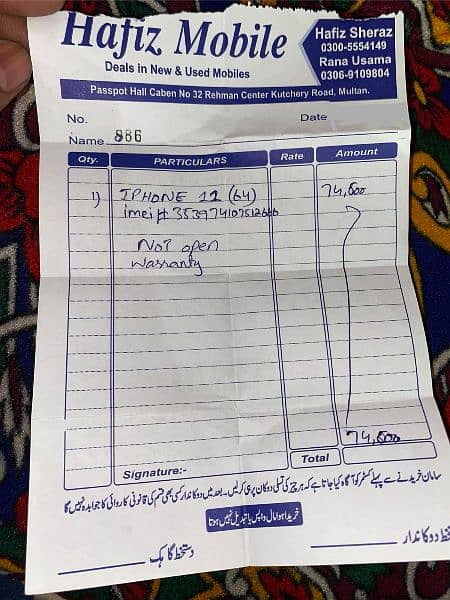 Hafiz Mobile
Deals in New & Used Mobiles
Hafiz Sheraz
0300-5554149
Rana Usama
0306-9109804
Passpot Hall Caben No 32 Rehman Center Kutchery Road, Multan.
No. Date
Name 886
Qty. PARTICULARS Rate Amount
1) IPHONE 12 (64) 74,500
imei # 353974107512666
Not open
warranty
74,500
Total
Signature:-
سامان خریدنے سے پہلے کسٹمر کو آگاہ کیا جاتا ہے کہ ہر چیز کی تسلی دوکان پر ہی کرلیں۔ بعد میں دوکاندار کسی بھی قسم کی قانونی کاروائی کا جوابدہ نہیں ہوگا
خریدا ہوا مال واپس یا تبدیل نہیں ہوتا
دستخط گاہک
دوکاندار